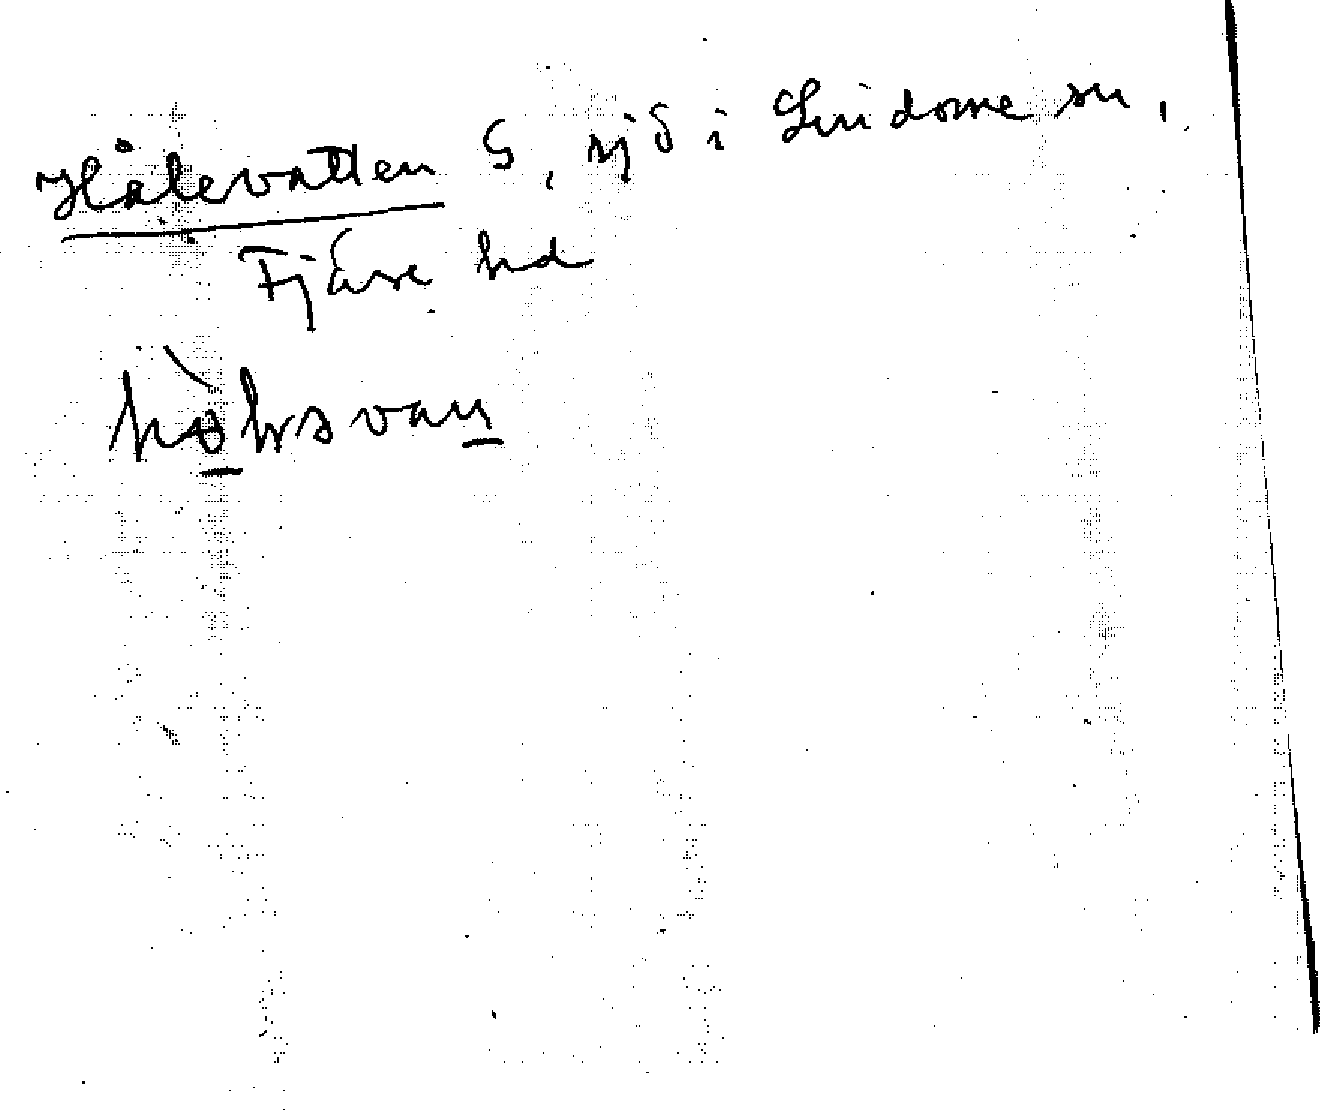 Hålevatten S, sjö i Lindome sn,
Fjäre hd